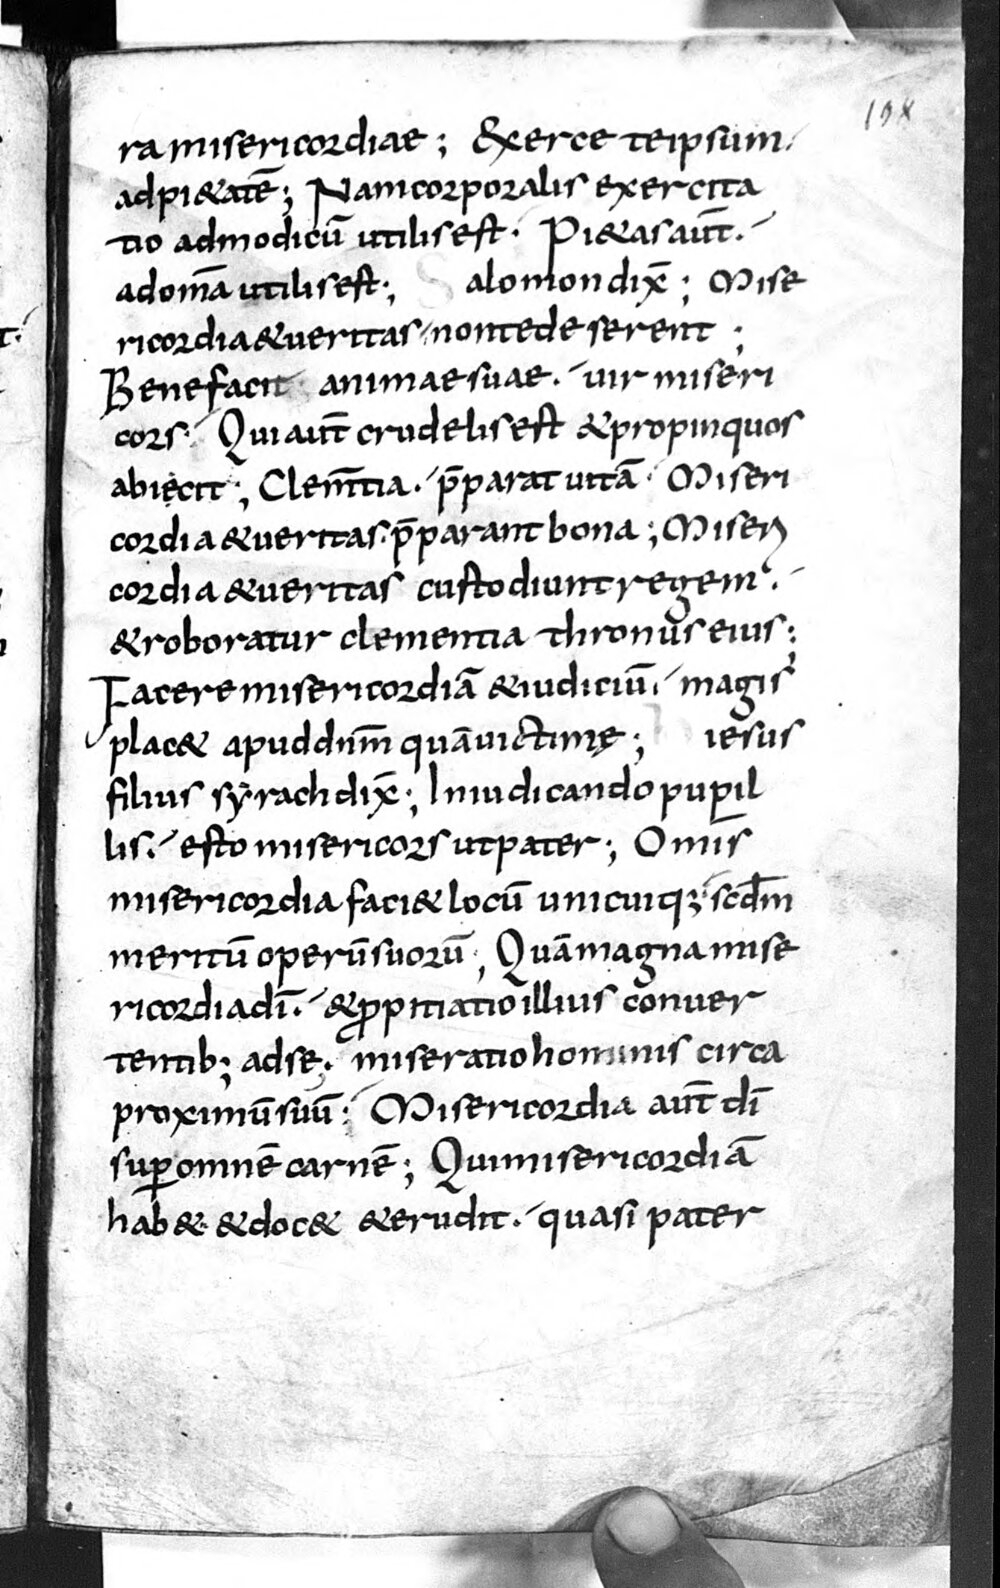 198
ra misericordiae; Exerce teipsum.
ad pi&atē; Nam corporalis exercita
tio ad modicū utilis est. Pi&as aut̄.
ad om̄a utilis est; Salomon dix̄; Mise
ricordia & ueritas non te deserent;
Benefacit animae suae. uir miseri
cors. Qui aut̄ crudelis est & propinquos
abiecit; Clem̄tia. p̄parat uitā. Miseri
cordia & ueritas. p̄parant bona; Miseri
cordia & ueritas custodiunt regem.
& roboratur clementia thronus eius;
Facere misericordiā & iudiciū. magis
plac& apud dnm̄ quā uictimę; iesus
filius syrach dix̄; In iudicando pupil
lis. esto misericors ut pater; Omis̄
misericordia faci& locū unicuiq; scd̄m
meritū operū suorū; Quā magna mise
ricordia dī. & ꝓpitiatio illius conuer
tentib; ad se; miseratio hominis circa
proximū suū: Misericordia aut̄ dī
suꝑ omnē carnē; Qui misericordiā
hab&. & doc& & erudit. quasi pater